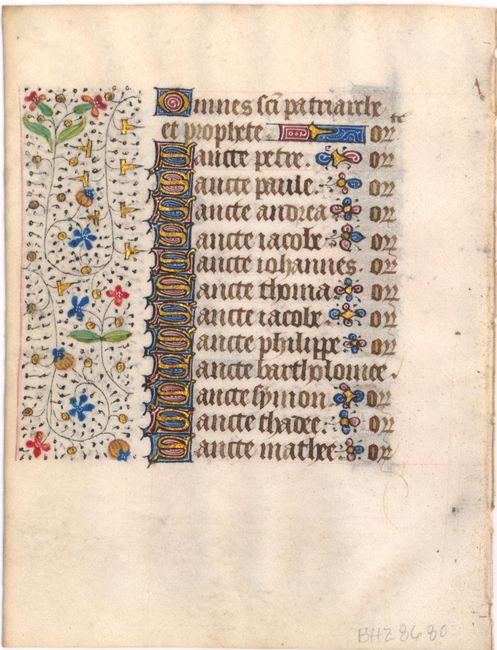 Omnes sci patriarche
et prophete. or
Sancte petre. or
Sancte paule. or
Sancte andrea or
Sancte iacobe or
Sancte iohannes. or
Sancte thoma or
Sancte iacobe or
Sancte philippe or
Sancte bartholomee.
Sancte symon or
Sancte thadee. or
Sancte mathee. or
BHZ 8680